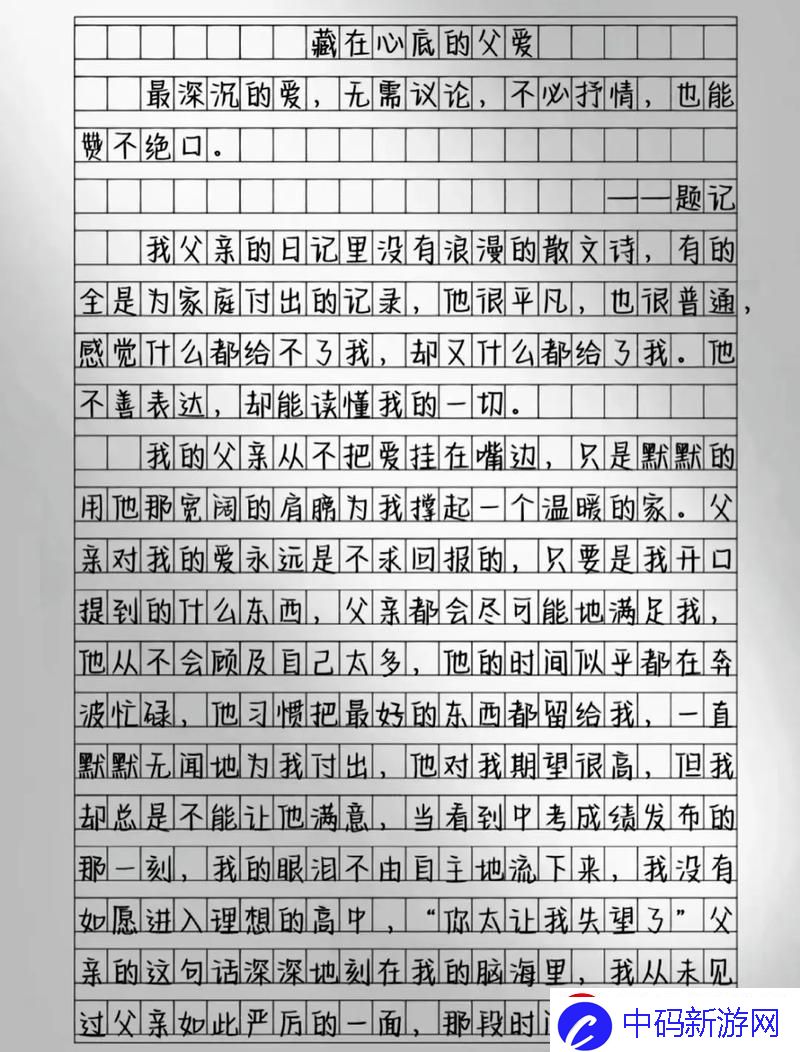 藏在心底的父爱
最深沉的爱，无需议论，不必抒情，也能
赞不绝口。
——题记
我父亲的日记里没有浪漫的散文诗，有的
全是为家庭付出的记录，他很平凡，也很普通，
感觉什么都给不了我，却又什么都给了我。他
不善表达，却能读懂我的一切。
我的父亲从不把爱挂在嘴边，只是默默的
用他那宽阔的肩膀为我撑起一个温暖的家。父
亲对我的爱永远是不求回报的，只要是我开口
提到的什么东西，父亲都会尽可能地满足我，
他从不会顾及自己太多，他的时间似乎都在奔
波忙碌，他习惯把最好的东西都留给我，一直
默默无闻地为我付出，他对我期望很高，但我
却总是不能让他满意，当看到中考成绩发布的
那一刻，我的眼泪不由自主地流下来，我没有
如愿进入理想的高中，“你太让我失望了”父
亲的这句话深深地刻在我的脑海里，我从未见
过父亲如此严厉的一面，那段时
中码新游网